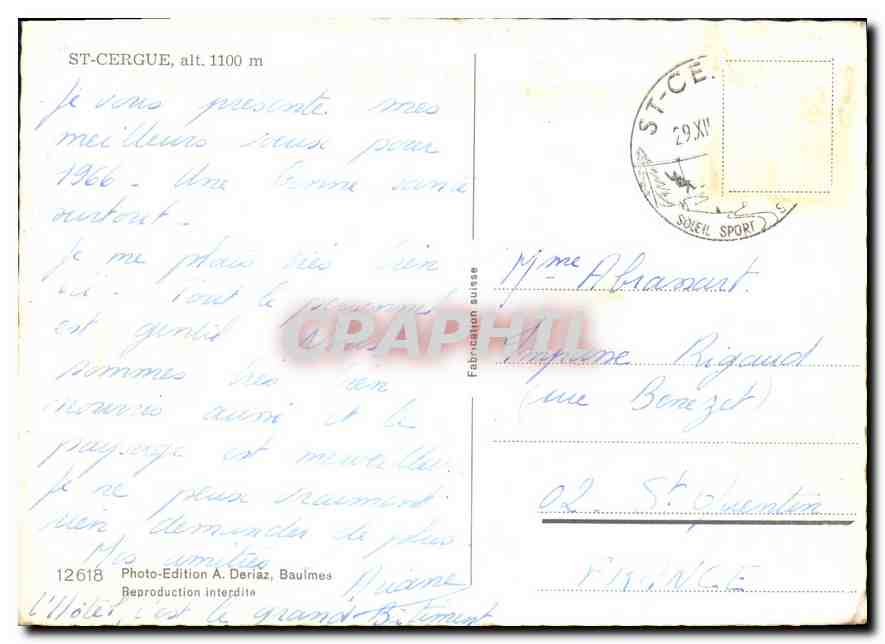 ST-CERGUE, alt. 1100 m
Je vous présente mes
meilleurs vœux pour
1966. Une bonne santé
surtout.
Je me plais très bien
ici. Tout le personnel
est gentil. Nous
sommes très bien
nourris aussi et le
paysage est merveilleux.
Je ne peux vraiment
rien demander de plus
Mes amitiés
Ariane
12618 Photo-Edition A. Deriaz, Baulmes
Reproduction interdite
l'Hôtel, c'est le grand Bâtiment
Fabrication suisse
CPAPHIL
ST-CE
29 XII
SOLEIL SPORT
Mme Abrassart
Impasse Rigaud
(rue Benezet)
02. St Quentin
FRANCE